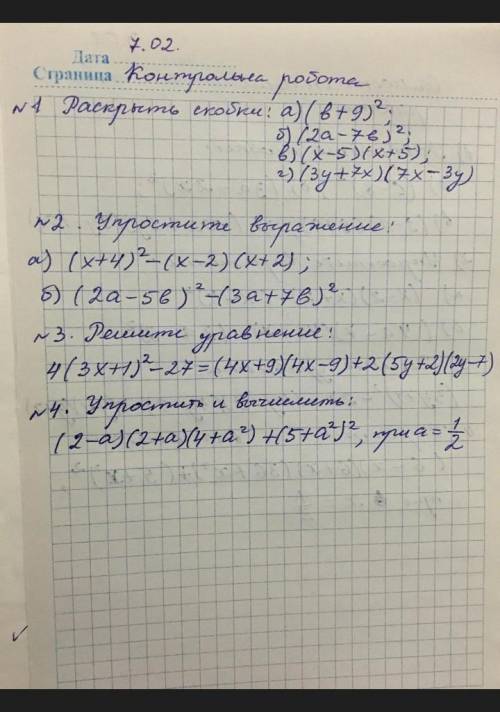 Дата 7.02.
Страница Контрольна робота
№1 Раскрыть скобки: а) (в+9)²;
б) (2а-7в)²;
в) (х-5)(х+5);
г) (3у+7х)(7х-3у)
№2. Упростите выражение:
а) (х+4)²-(х-2)(х+2);
б) (2а-5в)²-(3а+7в)²
№3. Решите уравнение:
4(3х+1)²-27=(4х+9)(4х-9)+2(5у+2)(2у-7)
№4. Упростить и вычислить:
(2-а)(2+а)(4+а²)+(5+а²)², при а=1/2